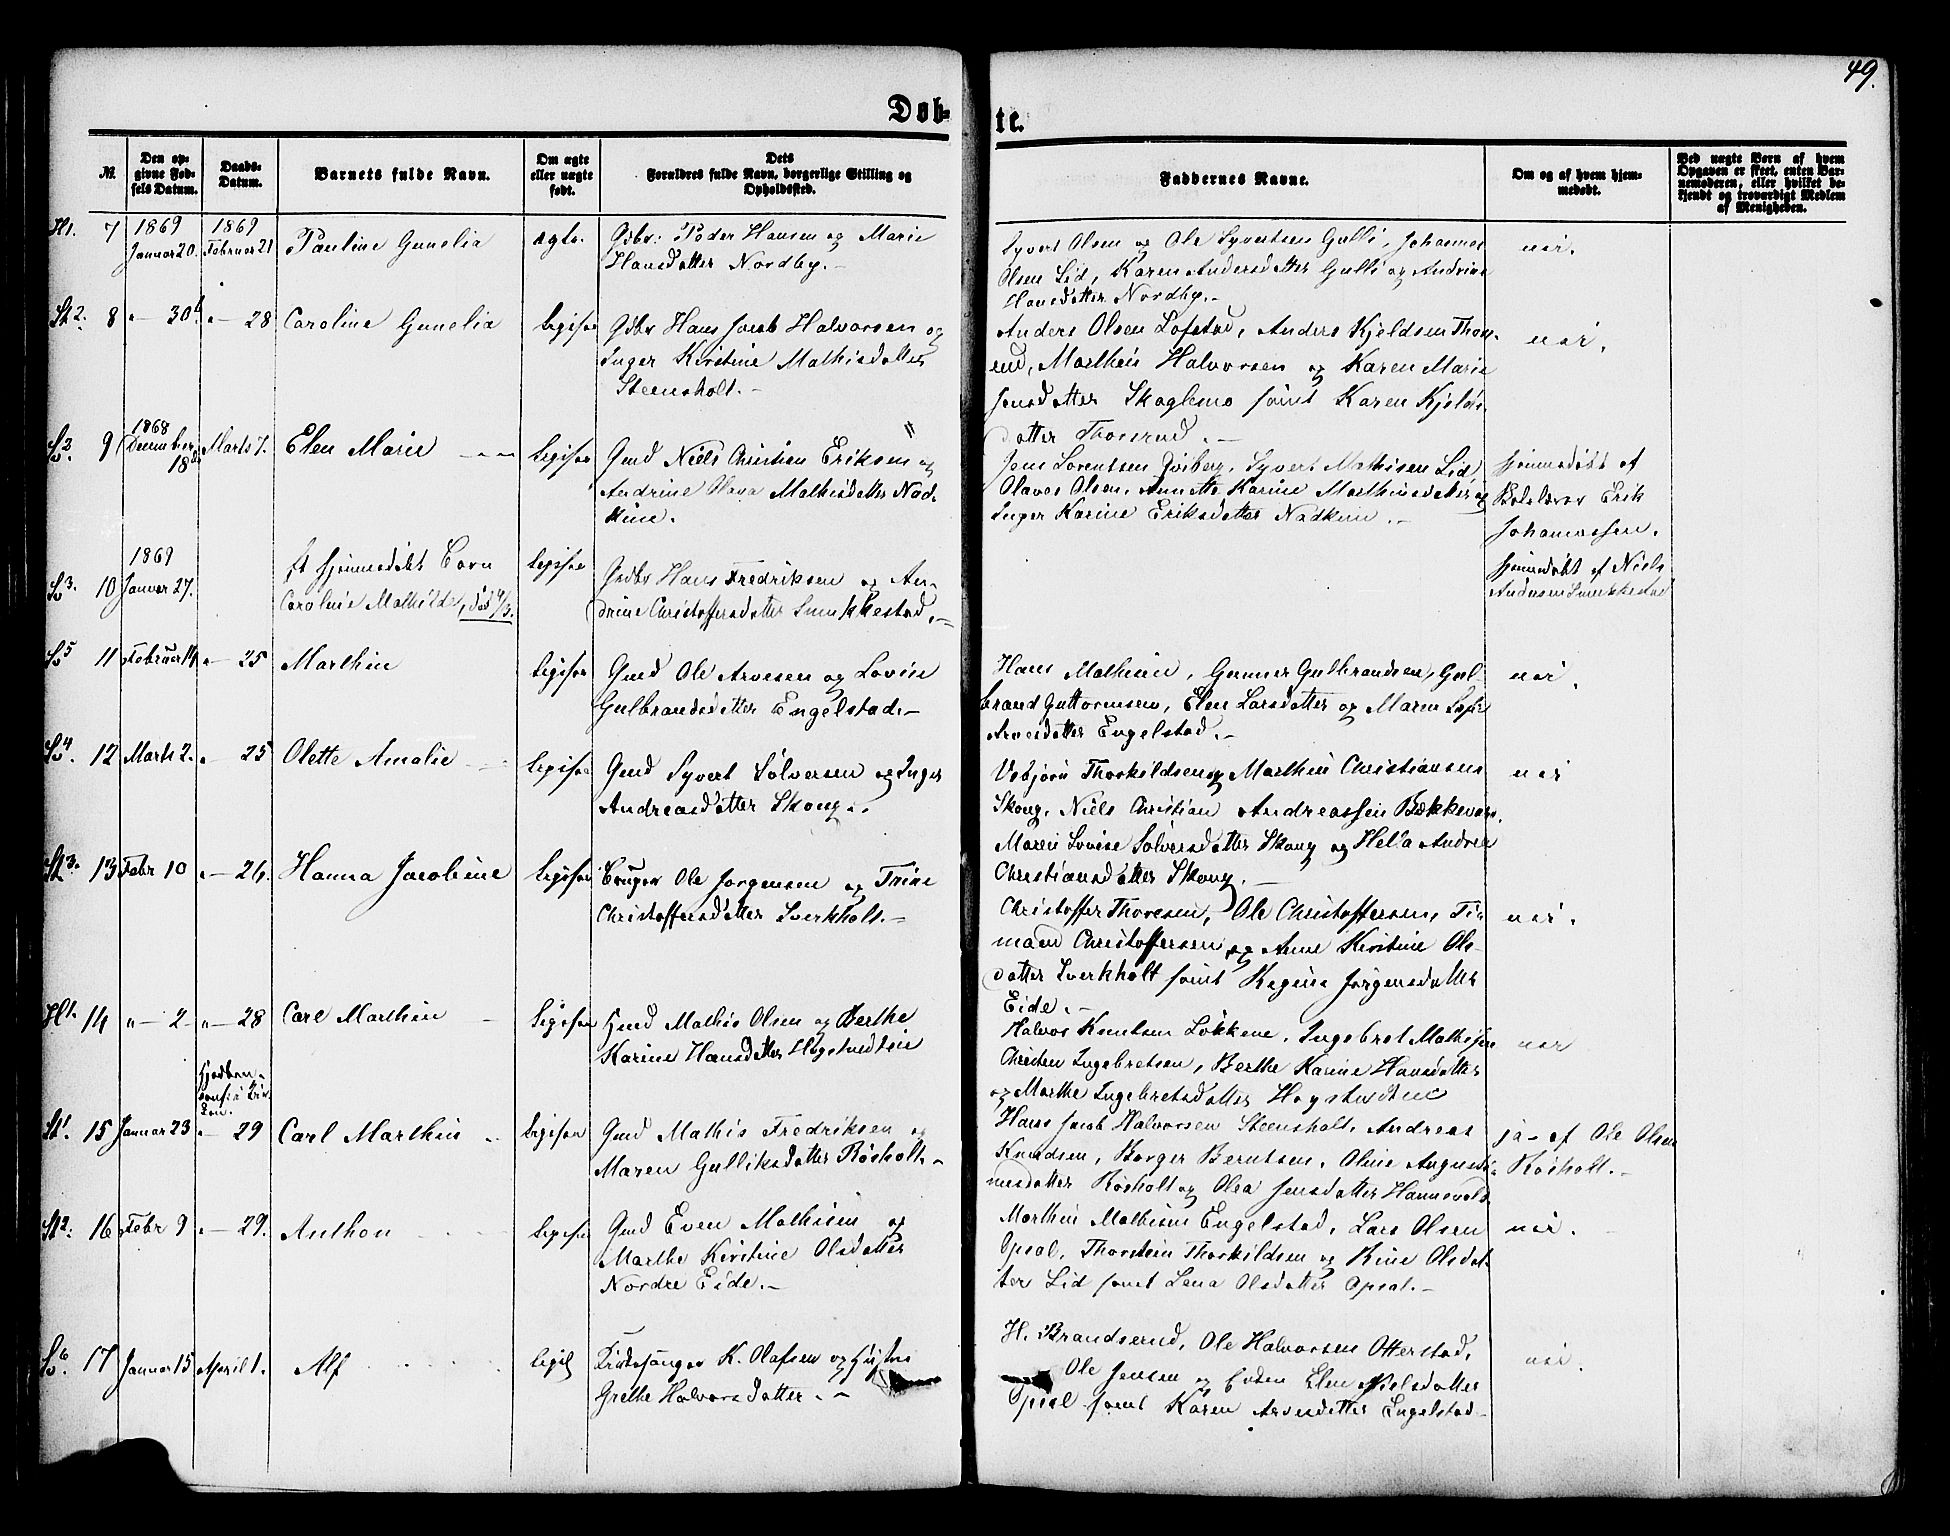 49.
Døb-
te.
№
Den op-
givne Fød-
sels Datum.
Daabs-
Datum.
Barnets fulde Navn.
Om ægte
eller uægte
født.
Dets
Forældres fulde Navn, borgerlige Stilling og
Opholdssted.
Faddernes Navne.
Om og af hvem hjem-
medøbt.
Ved uægte Børn af hvem
Opgaven er skeet, enten Bar-
nemoderen, eller hvilket be-
kjendt og troværdigt Medlem
af Menigheden.
7
1869
Januar 20.
1869
Februar 21
Pauline Gunelia
ægte.
Gdbr. Peder Hansen og Marie
Hansdatter Nordby.-
Syvert Olsen og Ole Syvertsen Gulli, Johannes
Olsen Lid, Karen Andersdatter Gulli og Andrine
Hansdatter Nordby.-
nei.
8
" — 30
" — 28
Caroline Gunelia
ligesaa
Gdbr Hans Jacob Halvorsen og
Inger Kirstine Mathisdatter
Steensholt.-
Anders Olsen Lofstad, Anders Kjeldsen Thors-
rud, Mathis Halvorsen og Karen Marie
Jensdatter Skoglemo samt Karen Kjelds-
datter Thorsrud.-
nei.
9
1868
December
18de
Marts 7.
Elen Marie
ligesaa
Gmd Niels Christian Eriksen og
Andrine Olava Mathisdatter Nad-
kine.
Jens Lorentsen Qviberg, Syvert Mathisen Lid,
Olaves Olsen, Annette Karine Mathisdatter og
Inger Karine Eriksdatter Nadkine.-
hjemmedøbt af
Erik
Johannessen.
10
1869
Januar 27.
Et hjemmedøbt Barn
Caroline Mathilde, død
ligesaa
Gdbr Hans Fredriksen og An-
drine Christoffersdatter Smukkestad.-
hjemmedøbt af Niels
Andersen Smukkestad
11
Februar 14
" — 25
Marthin
ligesaa
Gmd Ole Arvesen og Lovise
Gulbrandsdatter Engelstad.-
Hans Mathisen, Gunner Gulbrandsen, Gul-
brand Guttormsen, Elen Larsdatter og Maren Sofie
Arvesdatter Engelstad.-
nei.
12
Marts 2.
" — 25
Olette Amalie
ligesaa
Gmd Syvert Sølversen og Inger
Andreasdatter Skoug.-
Vebjørn Thorkildsen og Marthin Christiansen
Skoug, Niels Christian Andreassen Bækkevar,
Maren Lovise Sølversdatter Skoug og Helia Andrea
Christiansdatter Skoug.-
nei
13
Febr 10
" — 26.
Hanna Jacobine
ligesaa
Bruger Ole Jørgensen og Trine
Christoffersdatter Sverkholt.-
Christoffer Thoresen, Ole Christoffersen, Ti-
mand Christoffersen og Anne Kirstine Ols-
datter Sverkholt samt Regine Jørgensdatter
Eide.-
nei.
14
" — 2
" — 28
Carl Marthin
ligesaa
Gmd Mathis Olsen og Berthe
Karine Hansdatter Høgstvedteie
Halvor Knutsen Løkkene, Ingebret Mathisen
Christen Ingebretsen, Berthe Karine Hansdatter
og Marthe Ingebretsdatter Høgstvedteie
nei
15
Januar 23
" — 29
Carl Marthin
ligesaa
Gmd Mathis Fredriksen og
Maren Gulliksdatter Røsholt.-
Hans Jacob Halvorsen Steensholt, Andreas
Knudsen, Borger Berntsen, Oline Augusti-
nusdatter Røsholt og Olea Jensdatter Hannevold
ja- af Ole Olsen
Røsholt.-
16
Febr 9
" — 29.
Anthon
ligesaa
Gmd Even Mathisen og
Marthe Kirstine Olsdatter
Nordre Eide.-
Marthin Mathisen Engelstad, Lars Olsen
Opsal, Thorstein Thorkildsen og Rine Olsdat-
ter Lid samt Lena Olsdatter Opsal.-
nei.
17
Januar 15
April 1.
Alf
K. Olafsen og
Grethe Halvorsdatter.-
H. Brandserud, Ole Halvorsen Otterstad,
Ole Jensen og Elen Nielsdatter
Opsal samt Karen Arvesdatter Engelstad
nei.